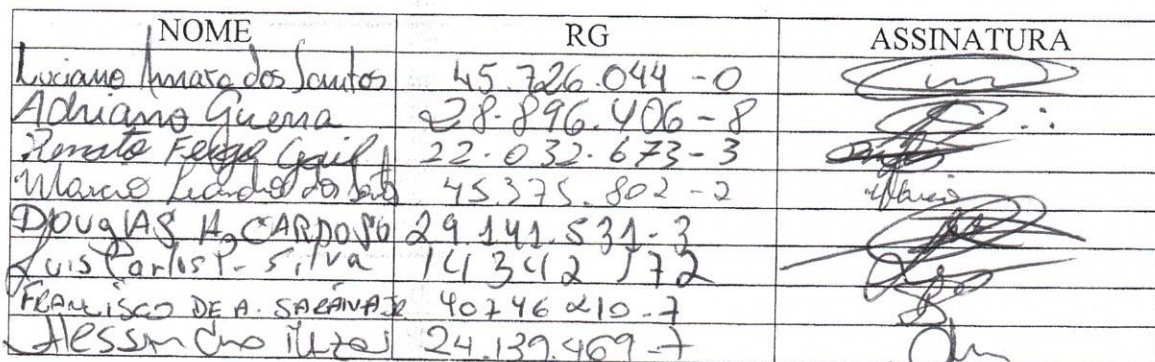 NOME RG ASSINATURA
Luciano Amaro dos Santos 45.726.044-0
Adriano Guerra 28.896.406-8
Renato 22.032.673-3
Marcio Leandro dos Santos 45.375.802-2 Marcio
DOUGlAS H. CARDOSO 29.141.531-3
Luis Carlos P. Silva 14342172
FRANCISCO DE A. 40746210-7
24.139.469-7